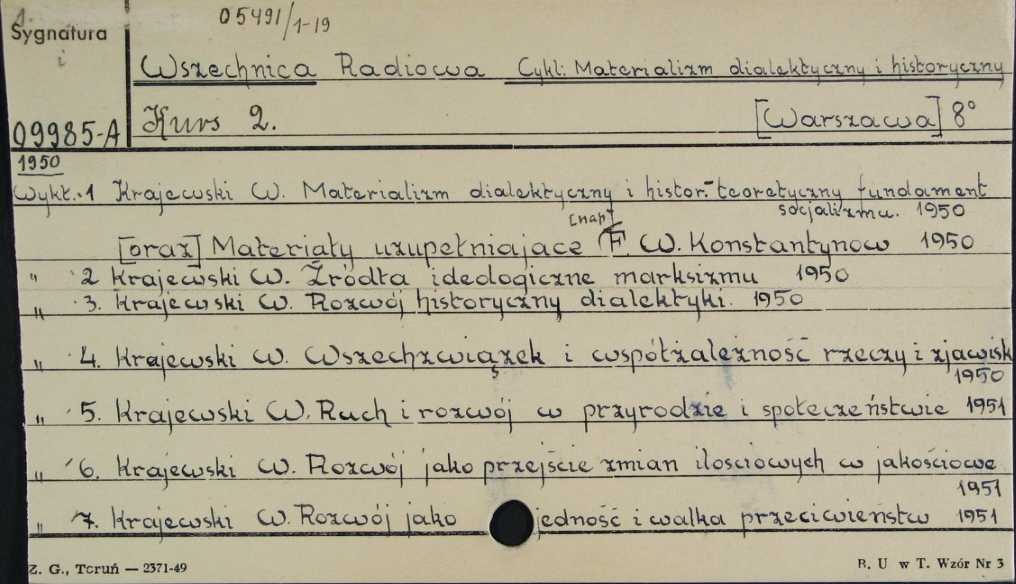 05491/1-19
Sygnatura
i
Wszechnica Radiowa Cykl: Materializm dialektyczny i historyczny
09985-A Kurs 2. [Warszawa] 8°
1950
Wykł. 1 Krajewski W. Materializm dialektyczny i histor.-teoretyczny fundament
socjalizmu. 1950
[nap]
[oraz] Materiały uzupełniające F. W. Konstantynow 1950
" 2 Krajewski W. Źródła ideologiczne marksizmu 1950
" 3. Krajewski W. Rozwój historyczny dialektyki. 1950
" 4. Krajewski W. Wszechzwiązek i współzależność rzeczy i zjawisk
1950
" 5. Krajewski W. Ruch i rozwój w przyrodzie i społeczeństwie 1951
" 6. Krajewski W. Rozwój jako przejście zmian ilościowych w jakościowe
1951
" 7. Krajewski W. Rozwój jako jedność i walka przeciwieństw 1951
Z. G., Toruń — 2371-49 B. U w T. Wzór Nr 3